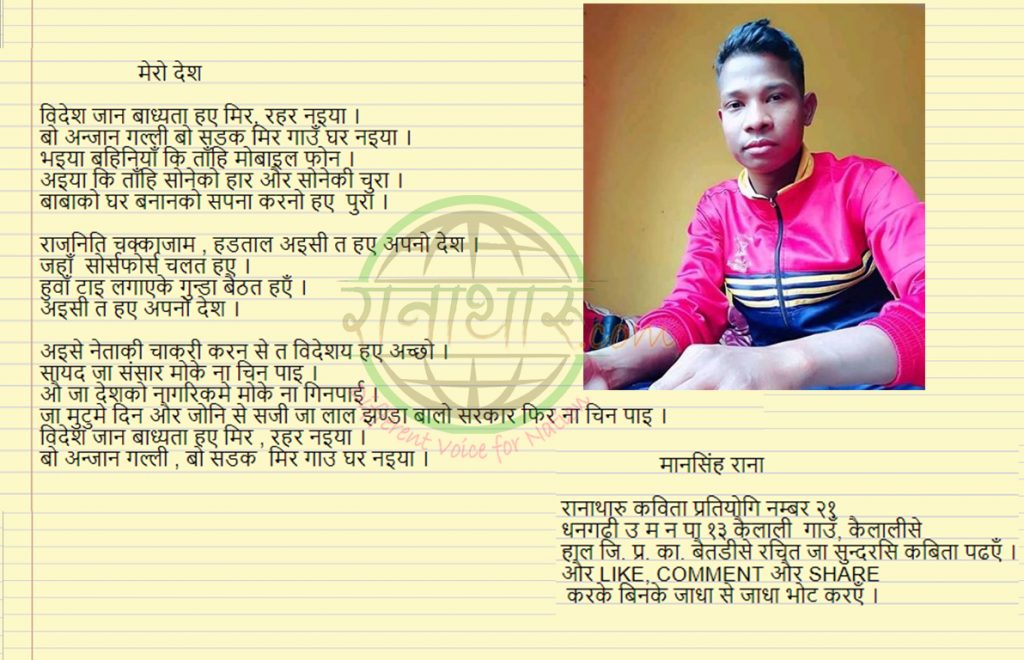 मेरो देश
विदेश जान बाध्यता हए मिर, रहर नइया ।
बो अन्जान गल्ली बो सडक मिर गाउँ घर नइया ।
भइया बहिनियाँ कि ताँहि मोबाइल फोन ।
अइया कि ताँहि सोनेको हार और सोनेकी चुरा ।
बाबाको घर बनानको सपना करनो हए पुरा ।
राजनिति चक्काजाम , हडताल अइसी त हए अपनो देश ।
जहाँ सोर्सफोर्स चलत हए ।
हुवाँ टाइ लगाएके गुन्डा बैठत हएँ ।
अइसी त हए अपनो देश ।
अइसे नेताकी चाकरी करन से त विदेशय हए अच्छो ।
सायद जा संसार मोके ना चिन पाइ ।
औ जा देशको नागरिकमे मोके ना गिनपाई ।
जा मुटुमे दिन और जोनि से सजी जा लाल झण्डा बालो सरकार फिर ना चिन पाइ ।
विदेश जान बाध्यता हए मिर , रहर नइया ।
बो अन्जान गल्ली , बो सडक मिर गाउ घर नइया ।
रानाथारू.com
Different Voice for Nation
मानसिंह राना
रानाथारु कविता प्रतियोगि नम्बर २१
धनगढी उ म न पा १३ कैलाली गाउँ, कैलालीसे
हाल जि. प्र. का. बैतडीसे रचित जा सुन्दरसि कबिता पढएँ ।
और LIKE, COMMENT और SHARE
करके बिनके जाधा से जाधा भोट करएँ ।